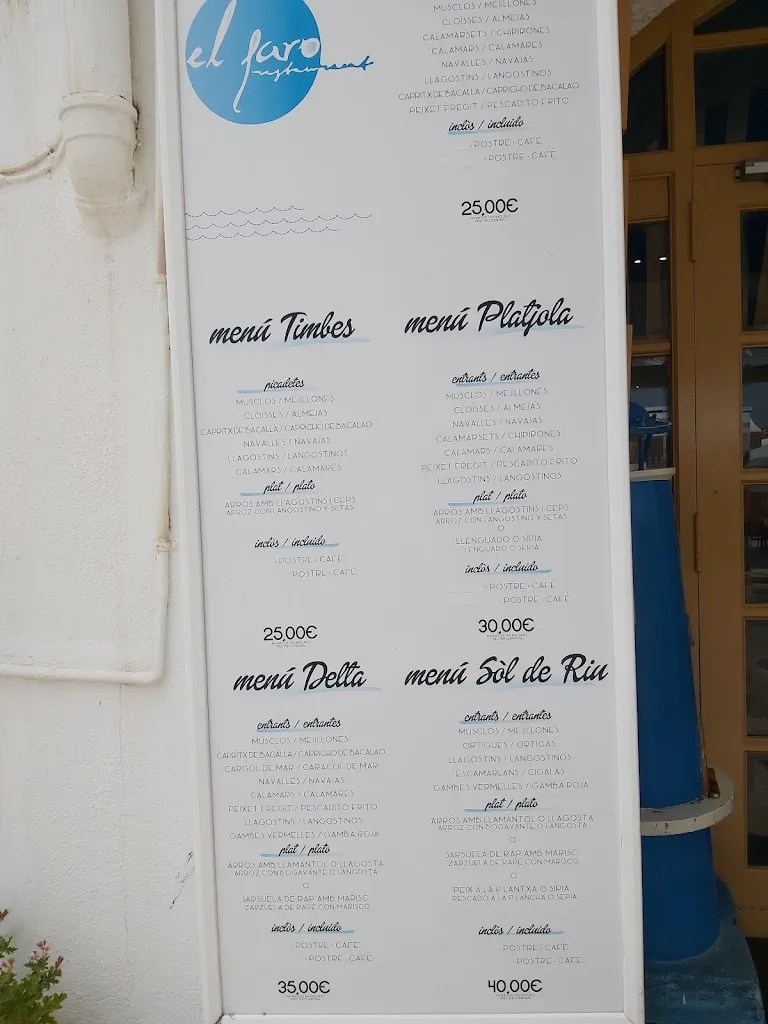 el faro
restaurant
MUSCLOS / MEJILLONES
CLOÏSSES / ALMEJAS
CALAMARSETS / CHIPIRONES
CALAMARS / CALAMARES
NAVALLES / NAVAJAS
LLAGOSTINS / LANGOSTINOS
CAPRITX DE BACALLA / CAPRICHO DE BACALAO
PEIXET FREGIT / PESCADITO FRITO
inclòs / incluido
- POSTRE - CAFE
- POSTRE - CAFÉ
25,00€
menú Timbes
picadetes
MUSCLOS / MEJILLONES
CLOÏSSES / ALMEJAS
CAPRITX DE BACALLA / CAPRICHO DE BACALAO
NAVALLES / NAVAJAS
LLAGOSTINS / LANGOSTINOS
CALAMARS / CALAMARES
plat / plato
ARROS AMB LLAGOSTINS I CEPS
ARROZ CON LANGOSTINO Y SETAS
inclòs / incluido
- POSTRE - CAFE
- POSTRE - CAFE
25,00€
menú Platjola
entrants / entrantes
MUSCLOS / MEJILLONES
CLOÏSSES / ALMEJAS
NAVALLES / NAVAJAS
CALAMARSETS / CHIPIRONES
CALAMARS / CALAMARES
PEIXET FREGIT / PESCADITO FRITO
LLAGOSTINS / LANGOSTINOS
plat / plato
ARROS AMB LLAGOSTINS I CEPS
ARROZ CON LANGOSTINO Y SETAS
O
LLENGUADO O SIPIA
LENGUADO O SEPIA
inclòs / incluido
- POSTRE - CAFE
- POSTRE - CAFE
30,00€
menú Delta
entrants / entrantes
MUSCLOS / MEJILLONES
CAPRITX DE BACALLA / CAPRICHO DE BACALAO
CARGOL DE MAR / CARACOL DE MAR
NAVALLES / NAVAJAS
CALAMARS / CALAMARES
PEIXET FREGIT / PESCADITO FRITO
LLAGOSTINS / LANGOSTINOS
GAMBES VERMELLES / GAMBA ROJA
plat / plato
ARROS AMB LLAMANTOL O LLAGOSTA
ARROZ CON BOGAVANTE O LANGOSTA
O
SARSUELA DE RAP AMB MARISC
ZARZUELA DE RAPE CON MARISCO
inclòs / incluido
- POSTRE - CAFE
- POSTRE - CAFE
35,00€
menú Sòl de Riu
entrants / entrantes
MUSCLOS / MEJILLONES
ORTIGUES / ORTIGAS
LLAGOSTINS / LANGOSTINOS
ESCAMARLANS / CIGALAS
GAMBES VERMELLES / GAMBA ROJA
plat / plato
ARROS AMB LLAMANTOL O LLAGOSTA
ARROZ CON BOGAVANTE O LANGOSTA
O
SARSUELA DE RAP AMB MARISC
ZARZUELA DE RAPE CON MARISCO
O
PEIX A LA PLANTXA O SIPIA
PESCADO A LA PLANCHA O SEPIA
inclòs / incluido
- POSTRE - CAFE
- POSTRE - CAFE
40,00€